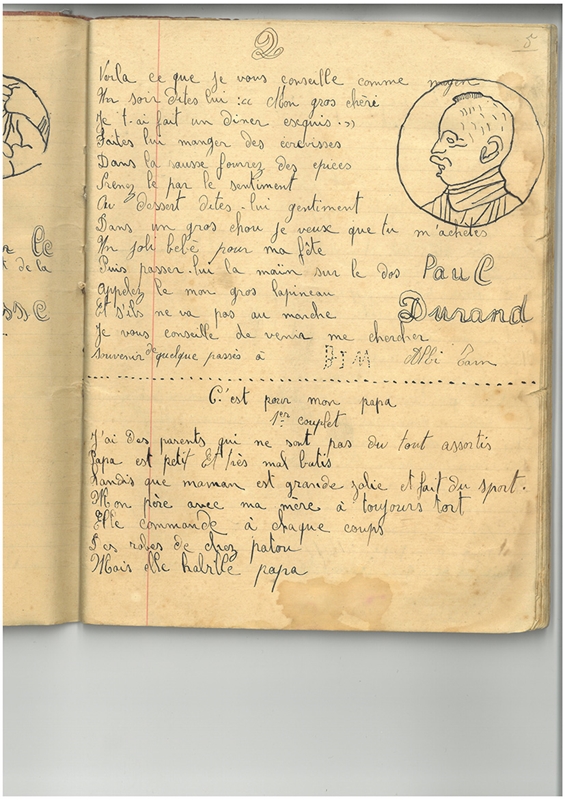 2
5
Voila ce que je vous conseille comme moyen
Un soir dites lui : « Mon gros chéri
Je t-ai fait un diner exquis. »
Faites lui manger des écrevisses
Dans la sausse fourrez des epices
Prenez le par le sentiment
Au dessert dites-lui gentiment
Dans un gros chou je veux que tu m'achètes
Un joli bebè pour ma fête
Puis passer-lui la main sur le dos
Appelez le mon gros lapineau
Et s'ils ne va pas au marche
Je vous conseille de venir me chercher
Paul
Durand
Souvenir de quelque passés à BIM Albi Tarn
C'est pour mon papa
1er couplet
J'ai des parents qui ne sont pas du tout assortis
Papa est petit Et très mal batis
Tandis que maman est grande jolie et fait du sport.
Mon père avec ma mère à toujours tort
Elle commande à chaque coups
Des robes de chez patou
Mais elle habille papa